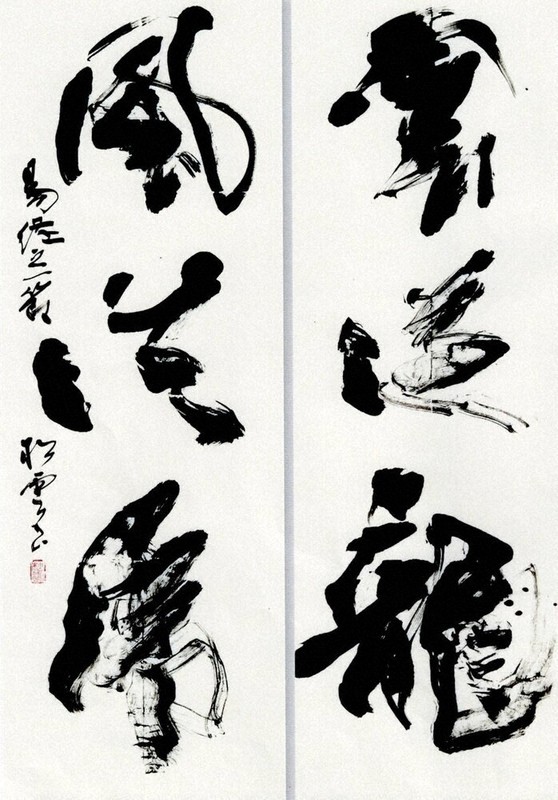 雲從龍
風從虎
易經之節
松雲